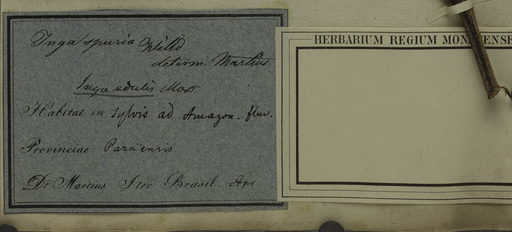 Inga spuria Willd
determ. Martius
Inga edulis Mart
Habitat in sylvis ad Amazon. fluv.
Provinciae Paraensis
Dr Martius Iter Brasil.
HERBARIUM REGIUM MON ENSE